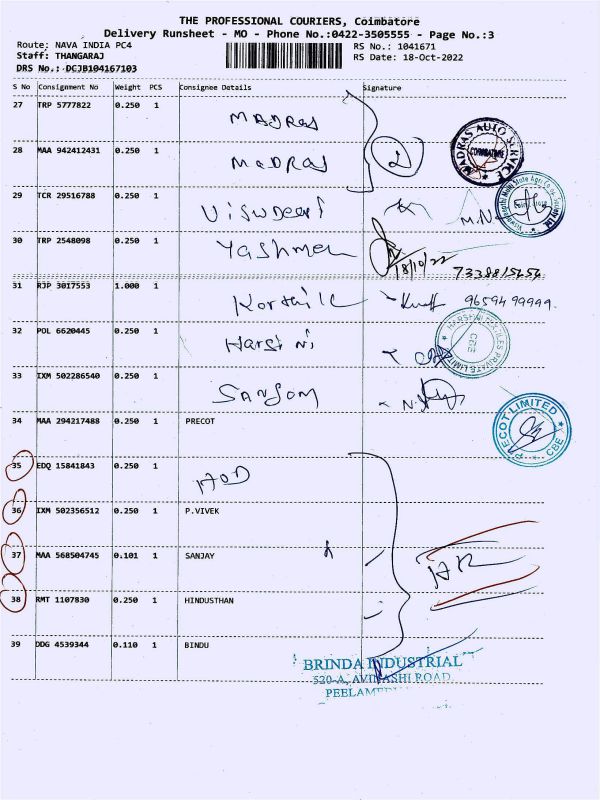 THE PROFESSIONAL COURIERS, Coimbatore
Delivery Runsheet - MO - Phone No.:0422-3505555 - Page No.:3
Route: NAVA INDIA PC4
Staff: THANGARAJ
DRS No.: DCJB104167103
RS No.: 1041671
RS Date: 18-Oct-2022
S No Consignment No Weight PCS Consignee Details Signature
27 TRP 5777822 0.250 1 MADRAS
28 MAA 942412431 0.250 1 MADRAS 2
MADRAS AUTO SERVICE COIMBATORE
29 TCR 29516788 0.250 1 M.N
30 TRP 2548098 0.250 1 Yashmen 18/10/22
31 RJP 3017553 1.000 1 96594 99999.
32 POL 6620445 0.250 1 Harsi Ni
PRIVATE LIMITED CBE
33 IXM 502286540 0.250 1
34 MAA 294217488 0.250 1 PRECOT
PRECOT LIMITED CBE
35 EDQ 15841843 0.250 1
36 IXM 502356512 0.250 1 P.VIVEK
37 MAA 568504745 0.101 1 SANJAY
38 RMT 1107830 0.250 1 HINDUSTHAN
39 DDG 4539344 0.110 1 BINDU
BRINDA INDUSTRIAL
520-A, AVINASHI ROAD